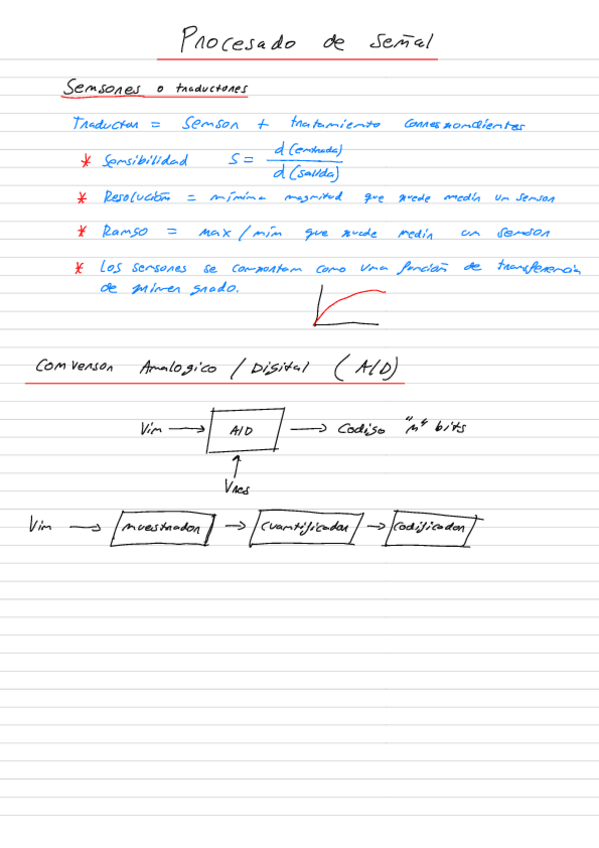 Procesado de señal
Sensores o traductores
Traductor = Sensor + tratamiento correspondientes
* Sensibilidad S = d(entrada) / d(salida)
* Resolución = mínima magnitud que puede medir un sensor
* Rango = max/min que puede medir un sensor
* Los sensores se comportan como una función de transferencia
de primer grado.
Conversor Analogico / Digital (A/D)
Vin → A/D → Codigo "n" bits
Vres
Vin → muestreador → cuantificador → codificador